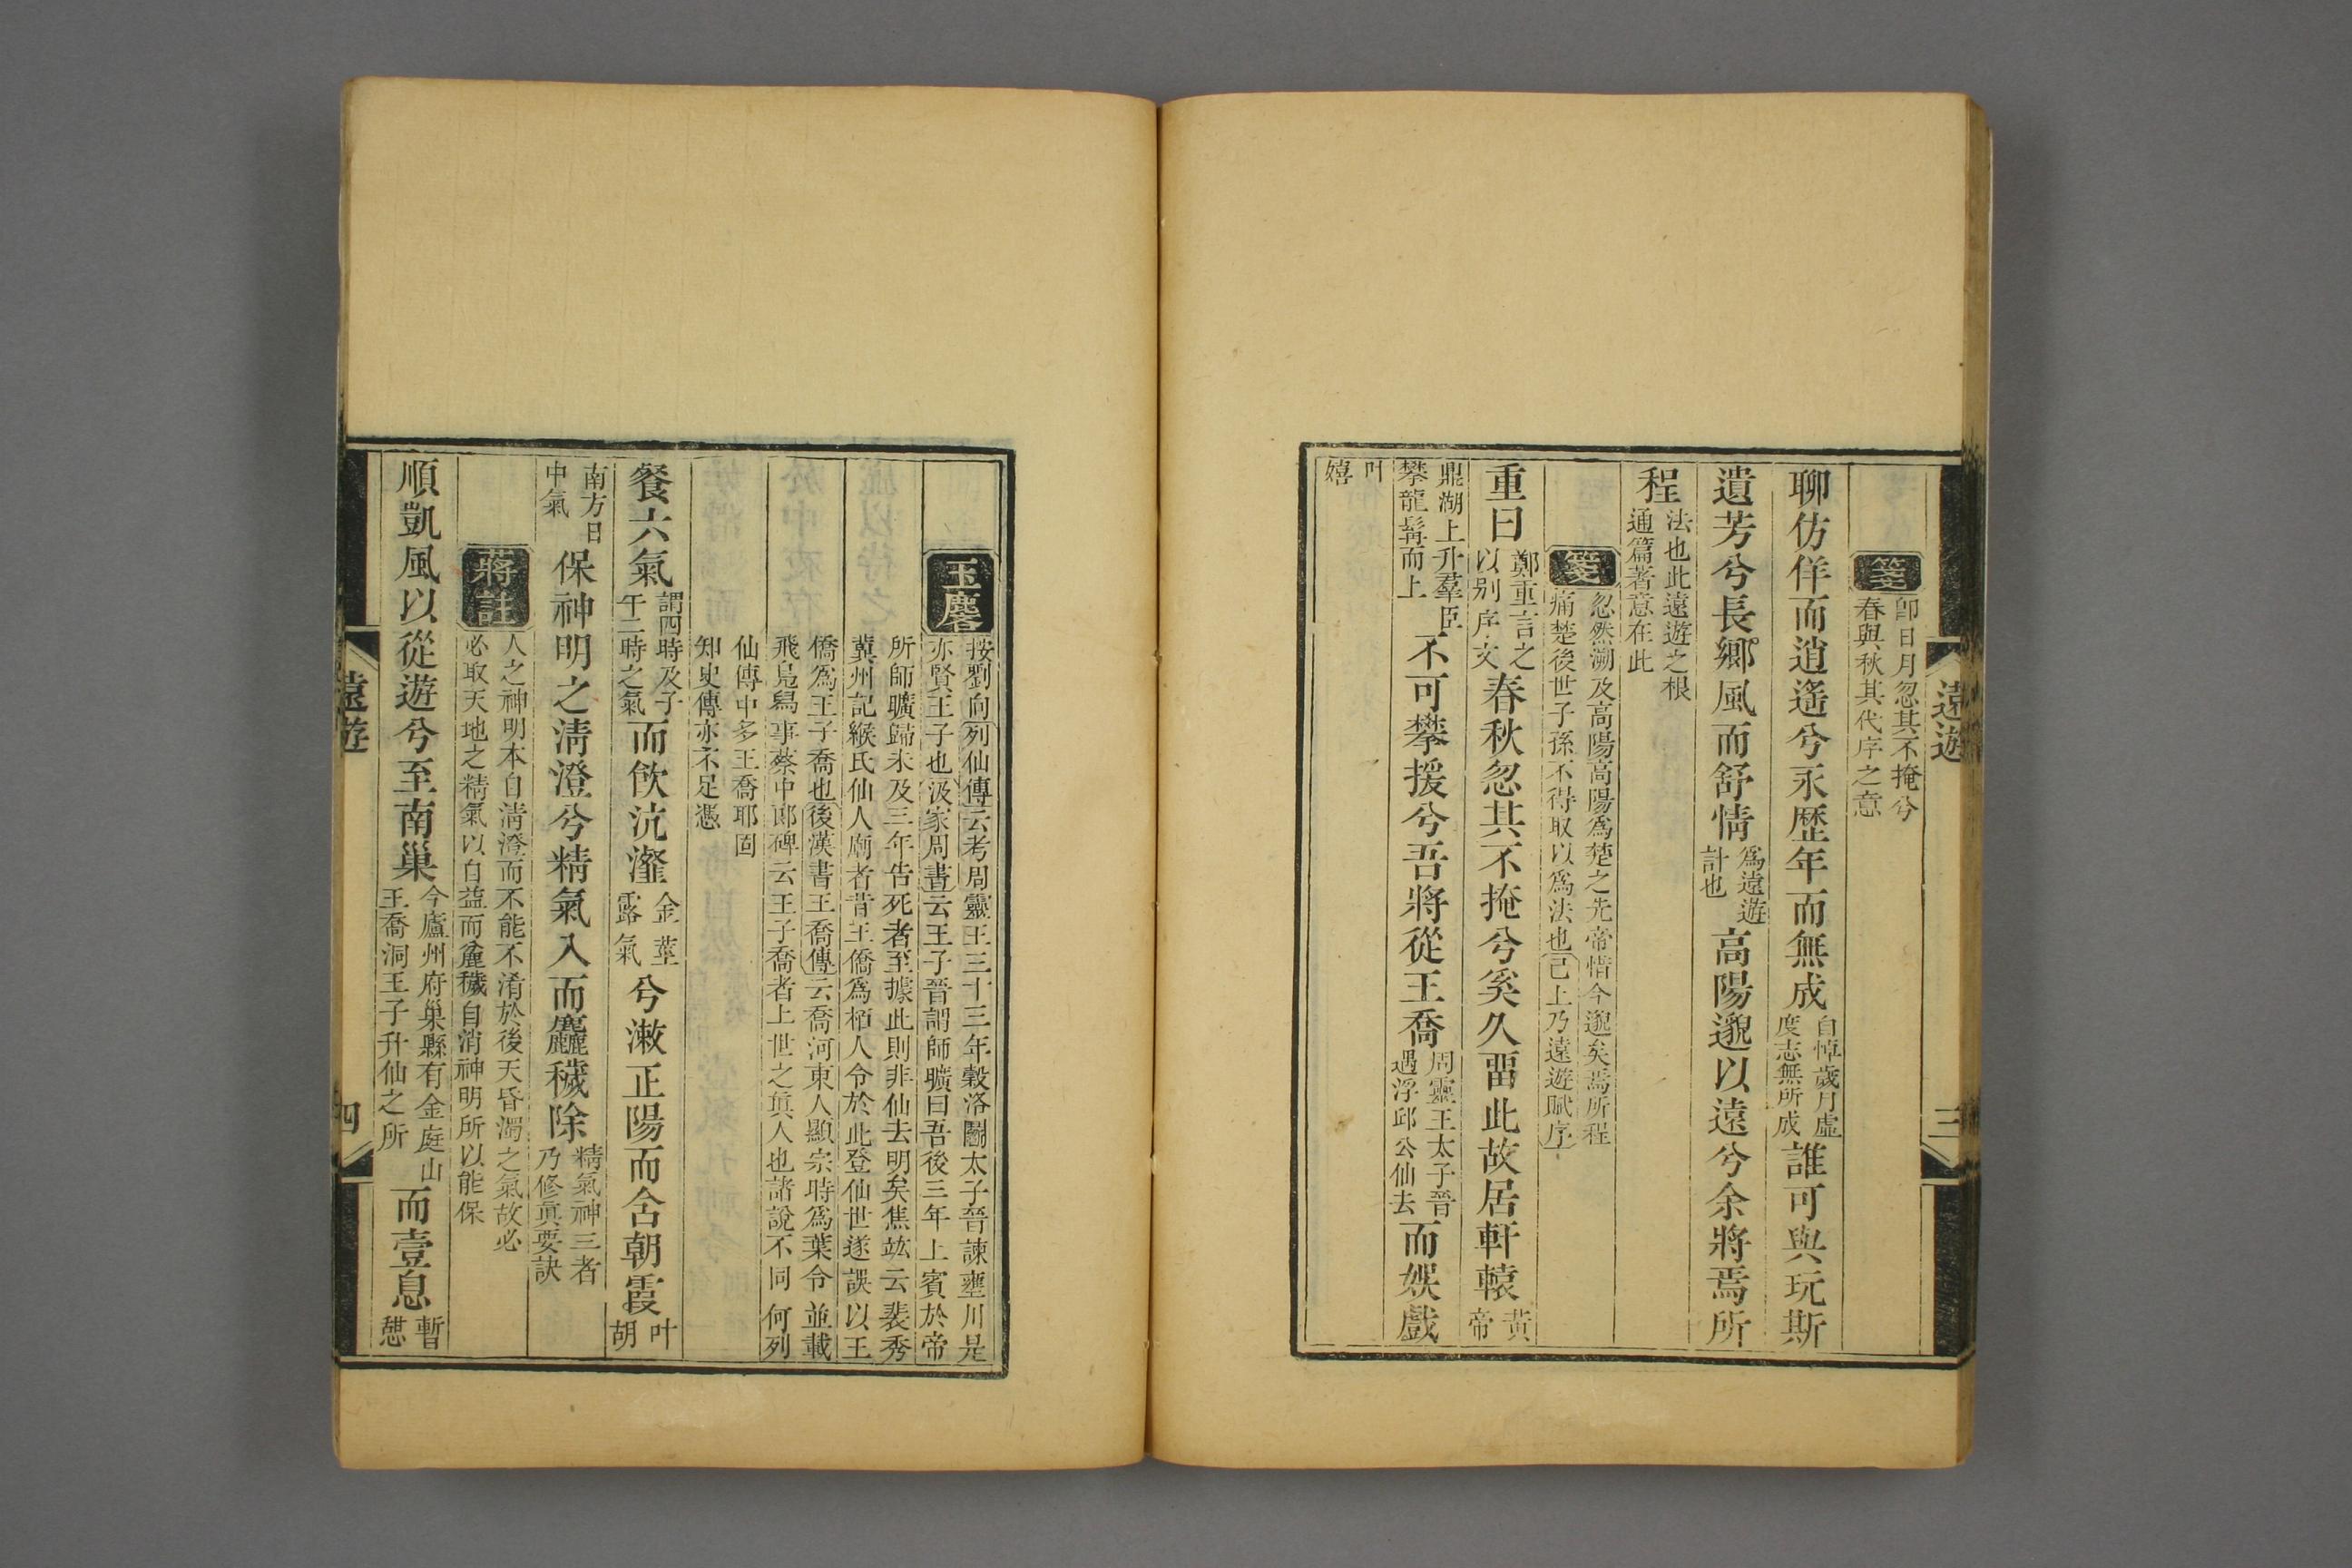 遠遊
三
箋
卽日月忽其不掩兮
春與秋其代序之意
聊仿佯而逍遙兮永歷年而無成
自悼歲月虛
度志無所成
誰可與玩斯
遺芳兮長鄉風而舒情
爲遠遊
計也
高陽邈以遠兮余將焉所
程
法也此遠遊之根
通篇著意在此
箋
忽然溯及高陽高陽爲楚之先帝惜今邈矣焉所程
痛楚後世子孫不得取以爲法也已上乃遠遊賦序
重曰
鄭重言之
以别序文
春秋忽其不掩兮奚久畱此故居軒轅
黃
帝
鼎湖上升羣臣
攀龍髯而上
不可攀援兮吾將從王喬
周靈王太子晉
遇浮邱公仙去
而娛戲
叶
嬉
玉麐
按劉向列仙傳云考周靈王三十三年穀洛鬭太子晉諫壅川是
亦賢王子也汲家周書云王子晉謂師曠曰吾後三年上賓於帝
所師曠歸未及三年告死者至據此則非仙去明矣焦竑云裴秀
冀州記緱氏仙人廟者昔王僑爲栢人令於此登仙世遂誤以王
僑爲王子喬也後漢書王喬傳云喬河東人顯宗時爲葉令並載
飛鳧舄事蔡中郎碑云王子喬者上世之眞人也諸說不同何列
仙傳中多王喬耶固
知史傳亦不足憑
餐六氣
謂四時及子
午二時之氣
而飮沆瀣
金莖
露氣
兮漱正陽而含朝霞
叶
胡
南方日
中氣
保神明之淸澄兮精氣入而麤穢除
精氣神三者
乃修眞要訣
蔣註
人之神明本自淸澄而不能不淆於後天昏濁之氣故必
必取天地之精氣以自益而麄穢自消神明所以能保
順凱風以從遊兮至南巢
今廬州府巢縣有金庭山
王喬洞王子升仙之所
而壹息
暫
憇
遠遊
四